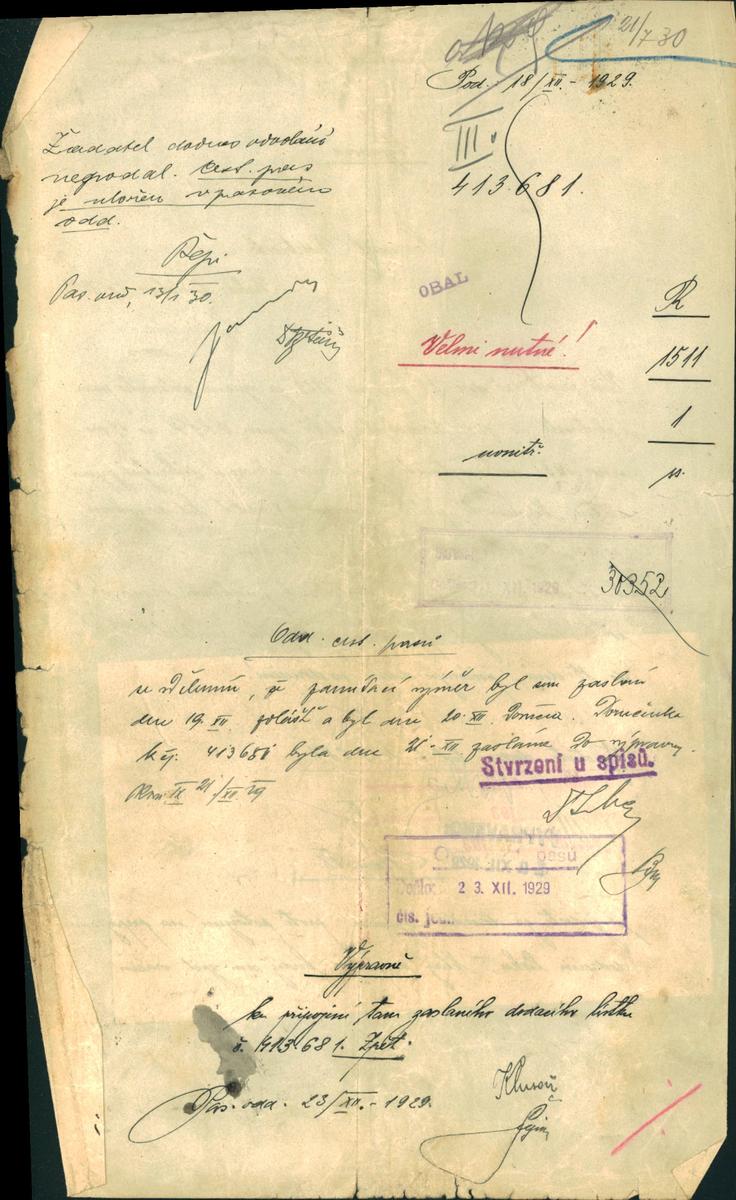 21/7 30
Pod. 18/XII. - 1929.
III.
413.681.
Žadatel dodnes odvolání
nepodal. Cest. pas
je uložen v pasovém
odd.
Pas. odd., 13/1 30.
OBAL
Velmi nutné!
R
1511
1
uvnitř.
XII. 1929
30352
Odd. cest. pasů
se sdělením, že zamítací výměr byl sem zaslán
dne 19. XII. zvlášť a byl dne 20. XII. doručen. Doručenka
k čj. 413681 byla dne 21. XII zaslána do výpravny.
IX 21/XII 29
Stvrzení u spisů.
Došlo: 23. XII. 1929
čís. jedn.
Výpravně
ku připojení tam zaslaného dodacího lístku
č. 413.681. Zpět.
Pas. odd. 23/XII. - 1929.